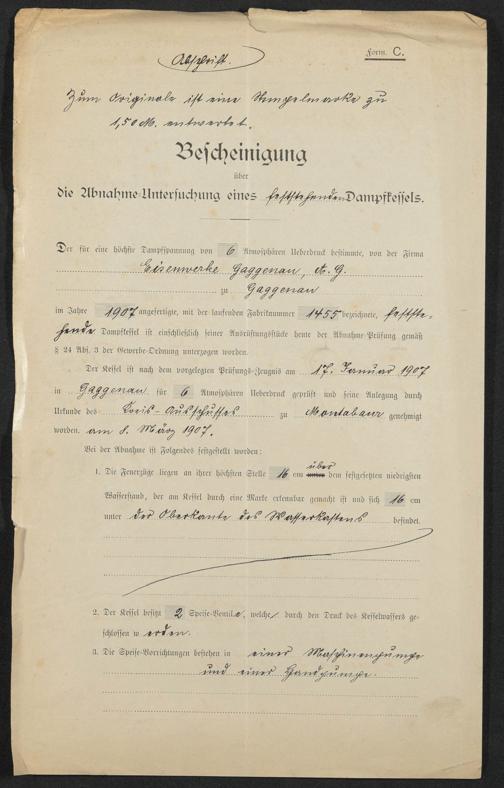 Form. C.
Abschrift.
Zum Originale ist eine Stempelmarke zu
1,50 M. entwertet.
Bescheinigung
über
die Abnahme-Untersuchung eines feststehenden Dampfkessels.
Der für eine höchste Dampfspannung von 6 Atmosphären Ueberdruck bestimmte, von der Firma
Eisenwerke Gaggenau, A. G.
zu Gaggenau
im Jahre 1907 angefertigte, mit der laufenden Fabriknummer 1455 bezeichnete, festste-
hende Dampfkessel ist einschließlich seiner Ausrüstungsstücke heute der Abnahme-Prüfung gemäß
§ 24 Abs. 3 der Gewerbe-Ordnung unterzogen worden.
Der Kessel ist nach dem vorgelegten Prüfungs-Zeugnis am 17. Januar 1907
in Gaggenau für 6 Atmosphären Ueberdruck geprüft und seine Anlegung durch
Urkunde des Kreis-Ausschusses zu Montabaur genehmigt
worden. am 8. März 1907.
Bei der Abnahme ist Folgendes festgestellt worden:
1. Die Feuerzüge liegen an ihrer höchsten Stelle 16 cm über dem festgesetzten niedrigsten
Wasserstand, der am Kessel durch eine Marke erkennbar gemacht ist und sich 16 cm
unter der Oberkante des Wasserkastens befindet.
2. Der Kessel besitzt 2 Speise-Ventile, welche durch den Druck des Kesselwassers ge-
schlossen werden.
3. Die Speise-Vorrichtungen bestehen in einer Maschinenpumpe
und einer Handpumpe.